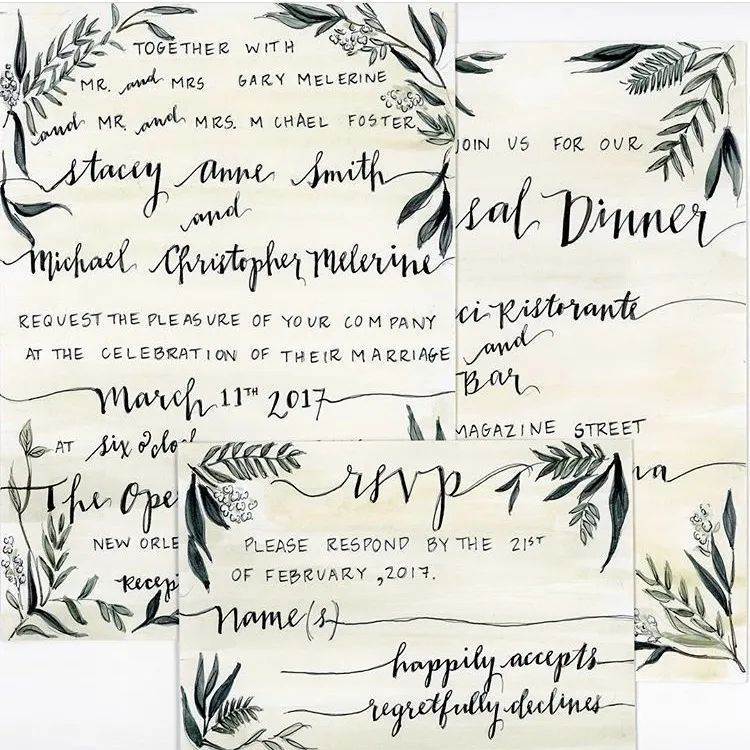 TOGETHER WITH
MR. and MRS GARY MELERINE
and MR. and MRS. M CHAEL FOSTER
stacey Anne Smith
and
Michael Christopher Melerine
REQUEST THE PLEASURE OF YOUR COMPANY
AT THE CELEBRATION OF THEIR MARRIAGE
March 11TH 2017
AT six o'cloc
The Ope
NEW ORLE
Recep
JOIN US FOR OUR
sal Dinner
ci Ristorante
and
Bar
MAGAZINE STREET
na
rsvp
PLEASE RESPOND BY THE 21ST
OF FEBRUARY, 2017.
name(s)
happily accepts
regretfully declines